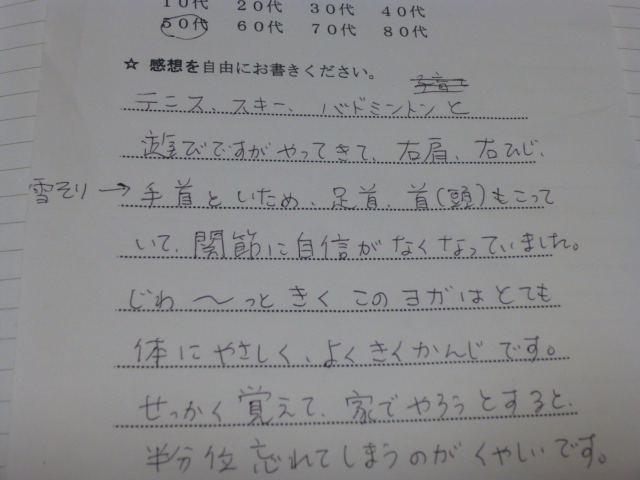 10代 20代 30代 40代
50代 60代 70代 80代
☆ 感想を自由にお書きください。
テニス、スキー、バドミントンと
遊びですがやってきて、右肩、右ひじ、
雪そり→手首といため、足首、首(頭)もこって
いて、関節に自信がなくなっていました。
じわ〜っときくこのヨガはとても
体にやさしく、よくきくかんじです。
せっかく覚えて、家でやろうとすると、
半分位忘れてしまうのがくやしいです。